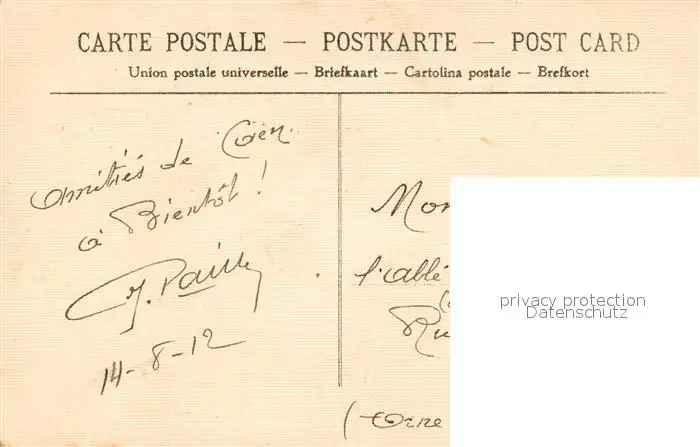 CARTE POSTALE — POSTKARTE — POST CARD
Union postale universelle — Briefkaart — Cartolina postale — Brefkort
Amitiés de Caen
à Bientôt !
14-8-12
Mon
l'abbé
(Orne
privacy protection
Datenschutz